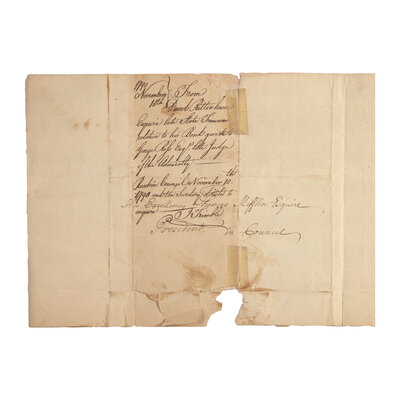 1790
November From
10th David Rittenhouse
Esquire late State Treasurer
relative to his Bonds given to
George Ross Esqr. late Judge
of the Admiralty
Read in Council November 10th
1790 and the Secretary directed to
enquire J Trimble
His Excellency Thomas Mifflin Esquire,
President in Council